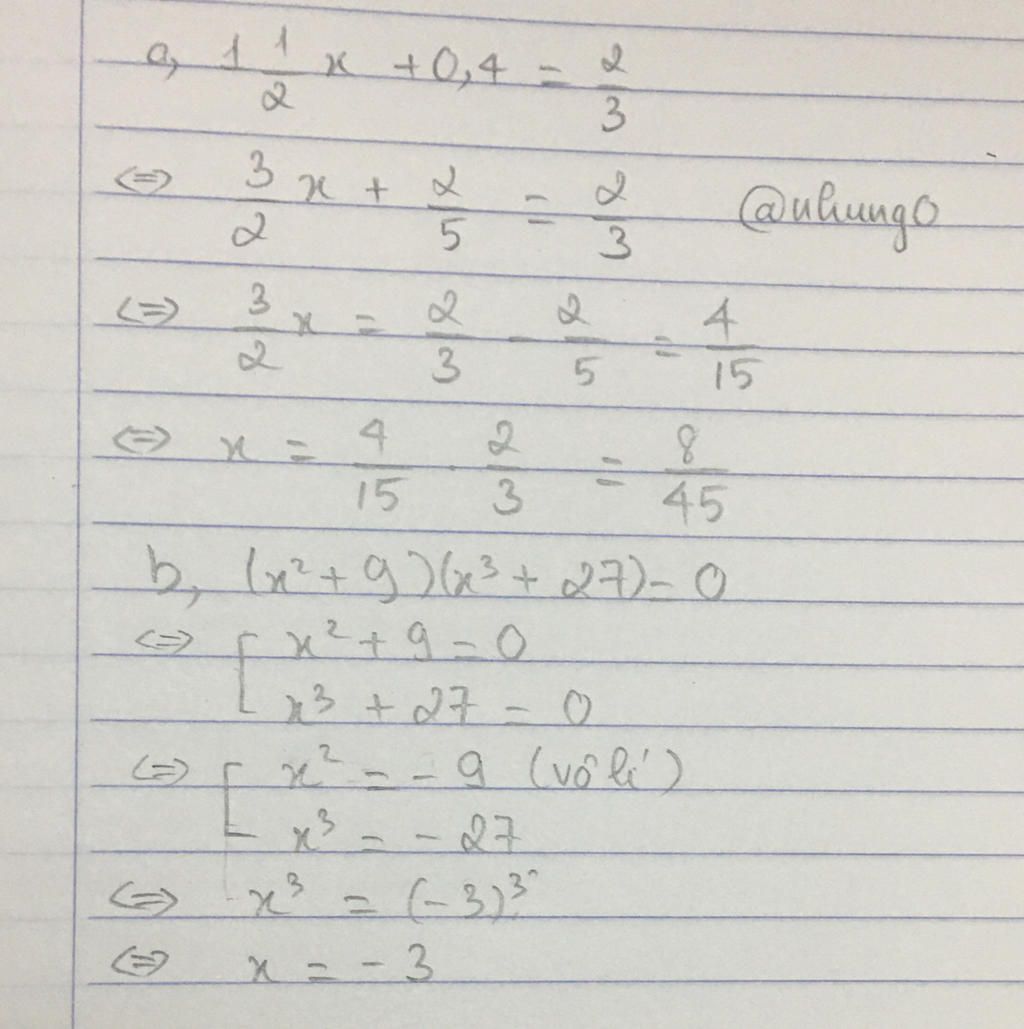 a, 1 1/2 x + 0,4 = 2/3
⇔ 3/2 x + 2/5 = 2/3 @nhung0
⇔ 3/2 x = 2/3 - 2/5 = 4/15
⇔ x = 4/15 . 2/3 = 8/45
b, (x² + 9)(x³ + 27) = 0
⇔ [ x² + 9 = 0
x³ + 27 = 0
⇔ [ x² = - 9 (vô lí)
x³ = - 27
⇔ x³ = (- 3)³
⇔ x = - 3